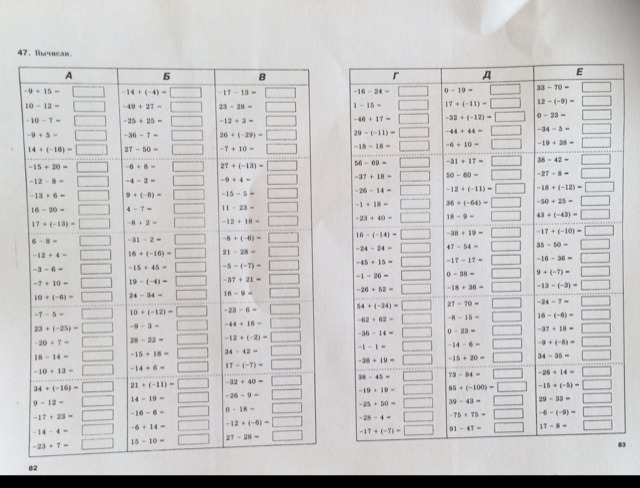 47. Вычисли.
А Б В
-9 + 15 = -14 + (-4) = -17 - 13 =
10 - 12 = -49 + 27 = 23 - 28 =
-10 - 7 = -25 + 25 = -12 + 3 =
-9 + 5 = -36 - 7 = 26 + (-29) =
14 + (-16) = 27 - 50 = -7 + 10 =
-15 + 20 = -6 + 8 = 27 + (-13) =
-12 - 8 = -4 - 2 = -9 + 4 =
-13 + 6 = 9 + (-8) = -15 - 5 =
16 - 20 = 4 - 7 = 11 - 23 =
17 + (-13) = -8 + 2 = -12 + 18 =
6 - 8 = -31 - 2 = -8 + (-6) =
-12 + 4 = 16 + (-16) = 21 - 28 =
-3 - 6 = -15 + 45 = -5 - (-7) =
-7 + 10 = 19 - (-4) = -37 + 21 =
10 + (-6) = 24 - 34 = 16 - 9 =
-7 - 5 = 10 + (-12) = -23 - 6 =
23 + (-25) = -9 - 3 = -44 + 16 =
-20 + 7 = 28 - 22 = -12 + (-2) =
18 - 14 = -15 + 18 = 34 - 42 =
-10 + 13 = -14 + 6 = 17 - (-7) =
34 + (-16) = 21 + (-11) = -32 + 40 =
9 - 12 = 14 - 19 = -26 - 9 =
-17 + 23 = -16 - 6 = 0 - 18 =
-14 - 4 = -6 + 14 = -12 + (-6) =
-23 + 7 = 15 - 10 = 27 - 28 =
82
Г Д Е
-16 - 24 = 0 - 19 = 33 - 70 =
1 - 15 = 17 + (-11) = 12 - (-9) =
-46 + 17 = -32 + (-12) = 0 - 23 =
29 - (-11) = -44 + 44 = -34 - 5 =
-18 - 18 = -6 + 10 = -19 + 38 =
56 - 69 = -31 + 17 = 38 - 42 =
-37 + 18 = 50 - 60 = -27 - 8 =
-26 - 14 = -12 + (-11) = -18 + (-12) =
-1 + 18 = 36 + (-64) = -50 + 25 =
-23 + 40 = 18 - 9 = 43 + (-43) =
16 - (-14) = -38 + 19 = -17 + (-10) =
-24 - 24 = 47 - 54 = 35 - 50 =
-45 + 15 = -17 - 17 = -16 - 36 =
-1 - 26 = 0 - 38 = 9 + (-7) =
-26 + 52 = -18 + 36 = -13 - (-3) =
54 + (-24) = 27 - 70 = -24 - 7 =
-62 + 62 = -8 - 15 = 16 - (-6) =
-36 - 14 = 0 - 23 = -37 + 18 =
-1 - 1 = -14 - 6 = -9 + (-8) =
-38 + 19 = -15 + 20 = 34 - 35 =
38 - 45 = 73 - 84 = -26 + 14 =
-19 + 19 = 85 + (-100) = -15 + (-5) =
-25 + 50 = 39 - 43 = 29 - 33 =
-28 - 4 = -75 + 75 = -6 - (-9) =
-17 + (-7) = 91 - 47 = 17 - 8 =
83